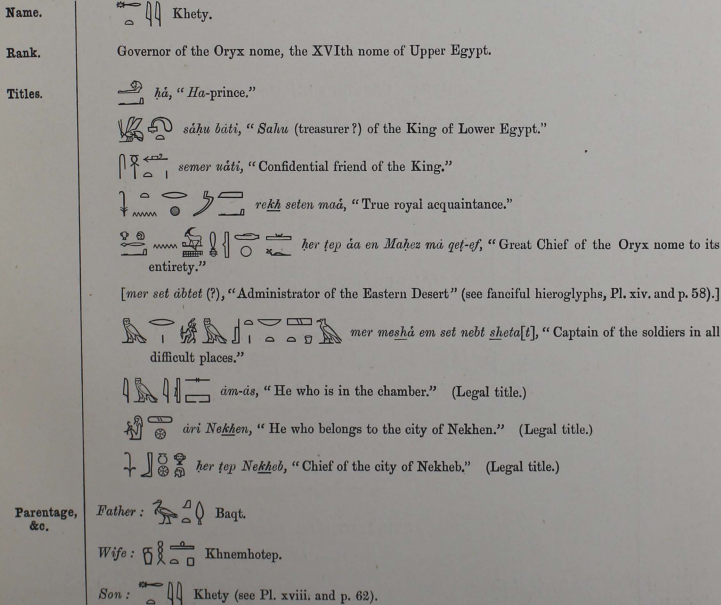 Name. Khety.
Rank. Governor of the Oryx nome, the XVIth nome of Upper Egypt.
Titles. ḥȧ, “Ha-prince.”
sȧḥu bȧti, “Sahu (treasurer?) of the King of Lower Egypt.”
semer uȧti, “Confidential friend of the King.”
rekh seten maȧ, “True royal acquaintance.”
ḥer ṭep ȧa en Maḥez mȧ qeṭ-ef, “Great Chief of the Oryx nome to its
entirety.”
[mer set ȧbtet (?), “Administrator of the Eastern Desert” (see fanciful hieroglyphs, Pl. xiv. and p. 58).]
mer meshȧ em set nebt sheta[t], “Captain of the soldiers in all
difficult places.”
ȧm-ȧs, “He who is in the chamber.” (Legal title.)
ȧri Nekhen, “He who belongs to the city of Nekhen.” (Legal title.)
ḥer ṭep Nekheb, “Chief of the city of Nekheb.” (Legal title.)
Parentage, &c. Father: Baqt.
Wife: Khnemhotep.
Son: Khety (see Pl. xviii. and p. 62).